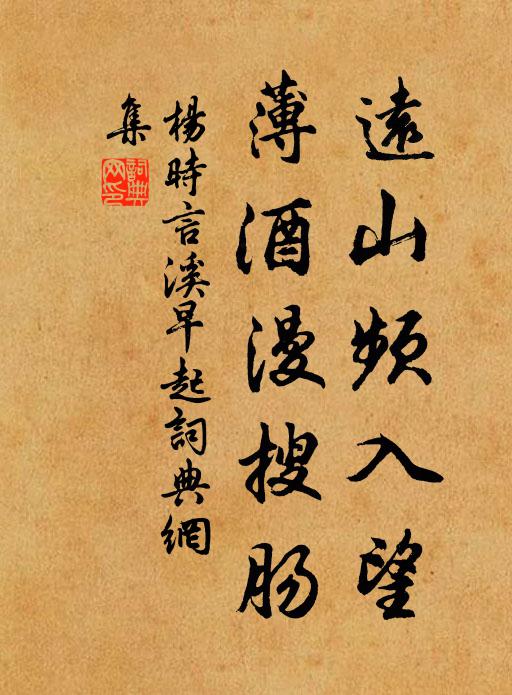 遠山頻入望
薄酒漫搜肠
楊時言溪早起詞典網
集
詞典
网印